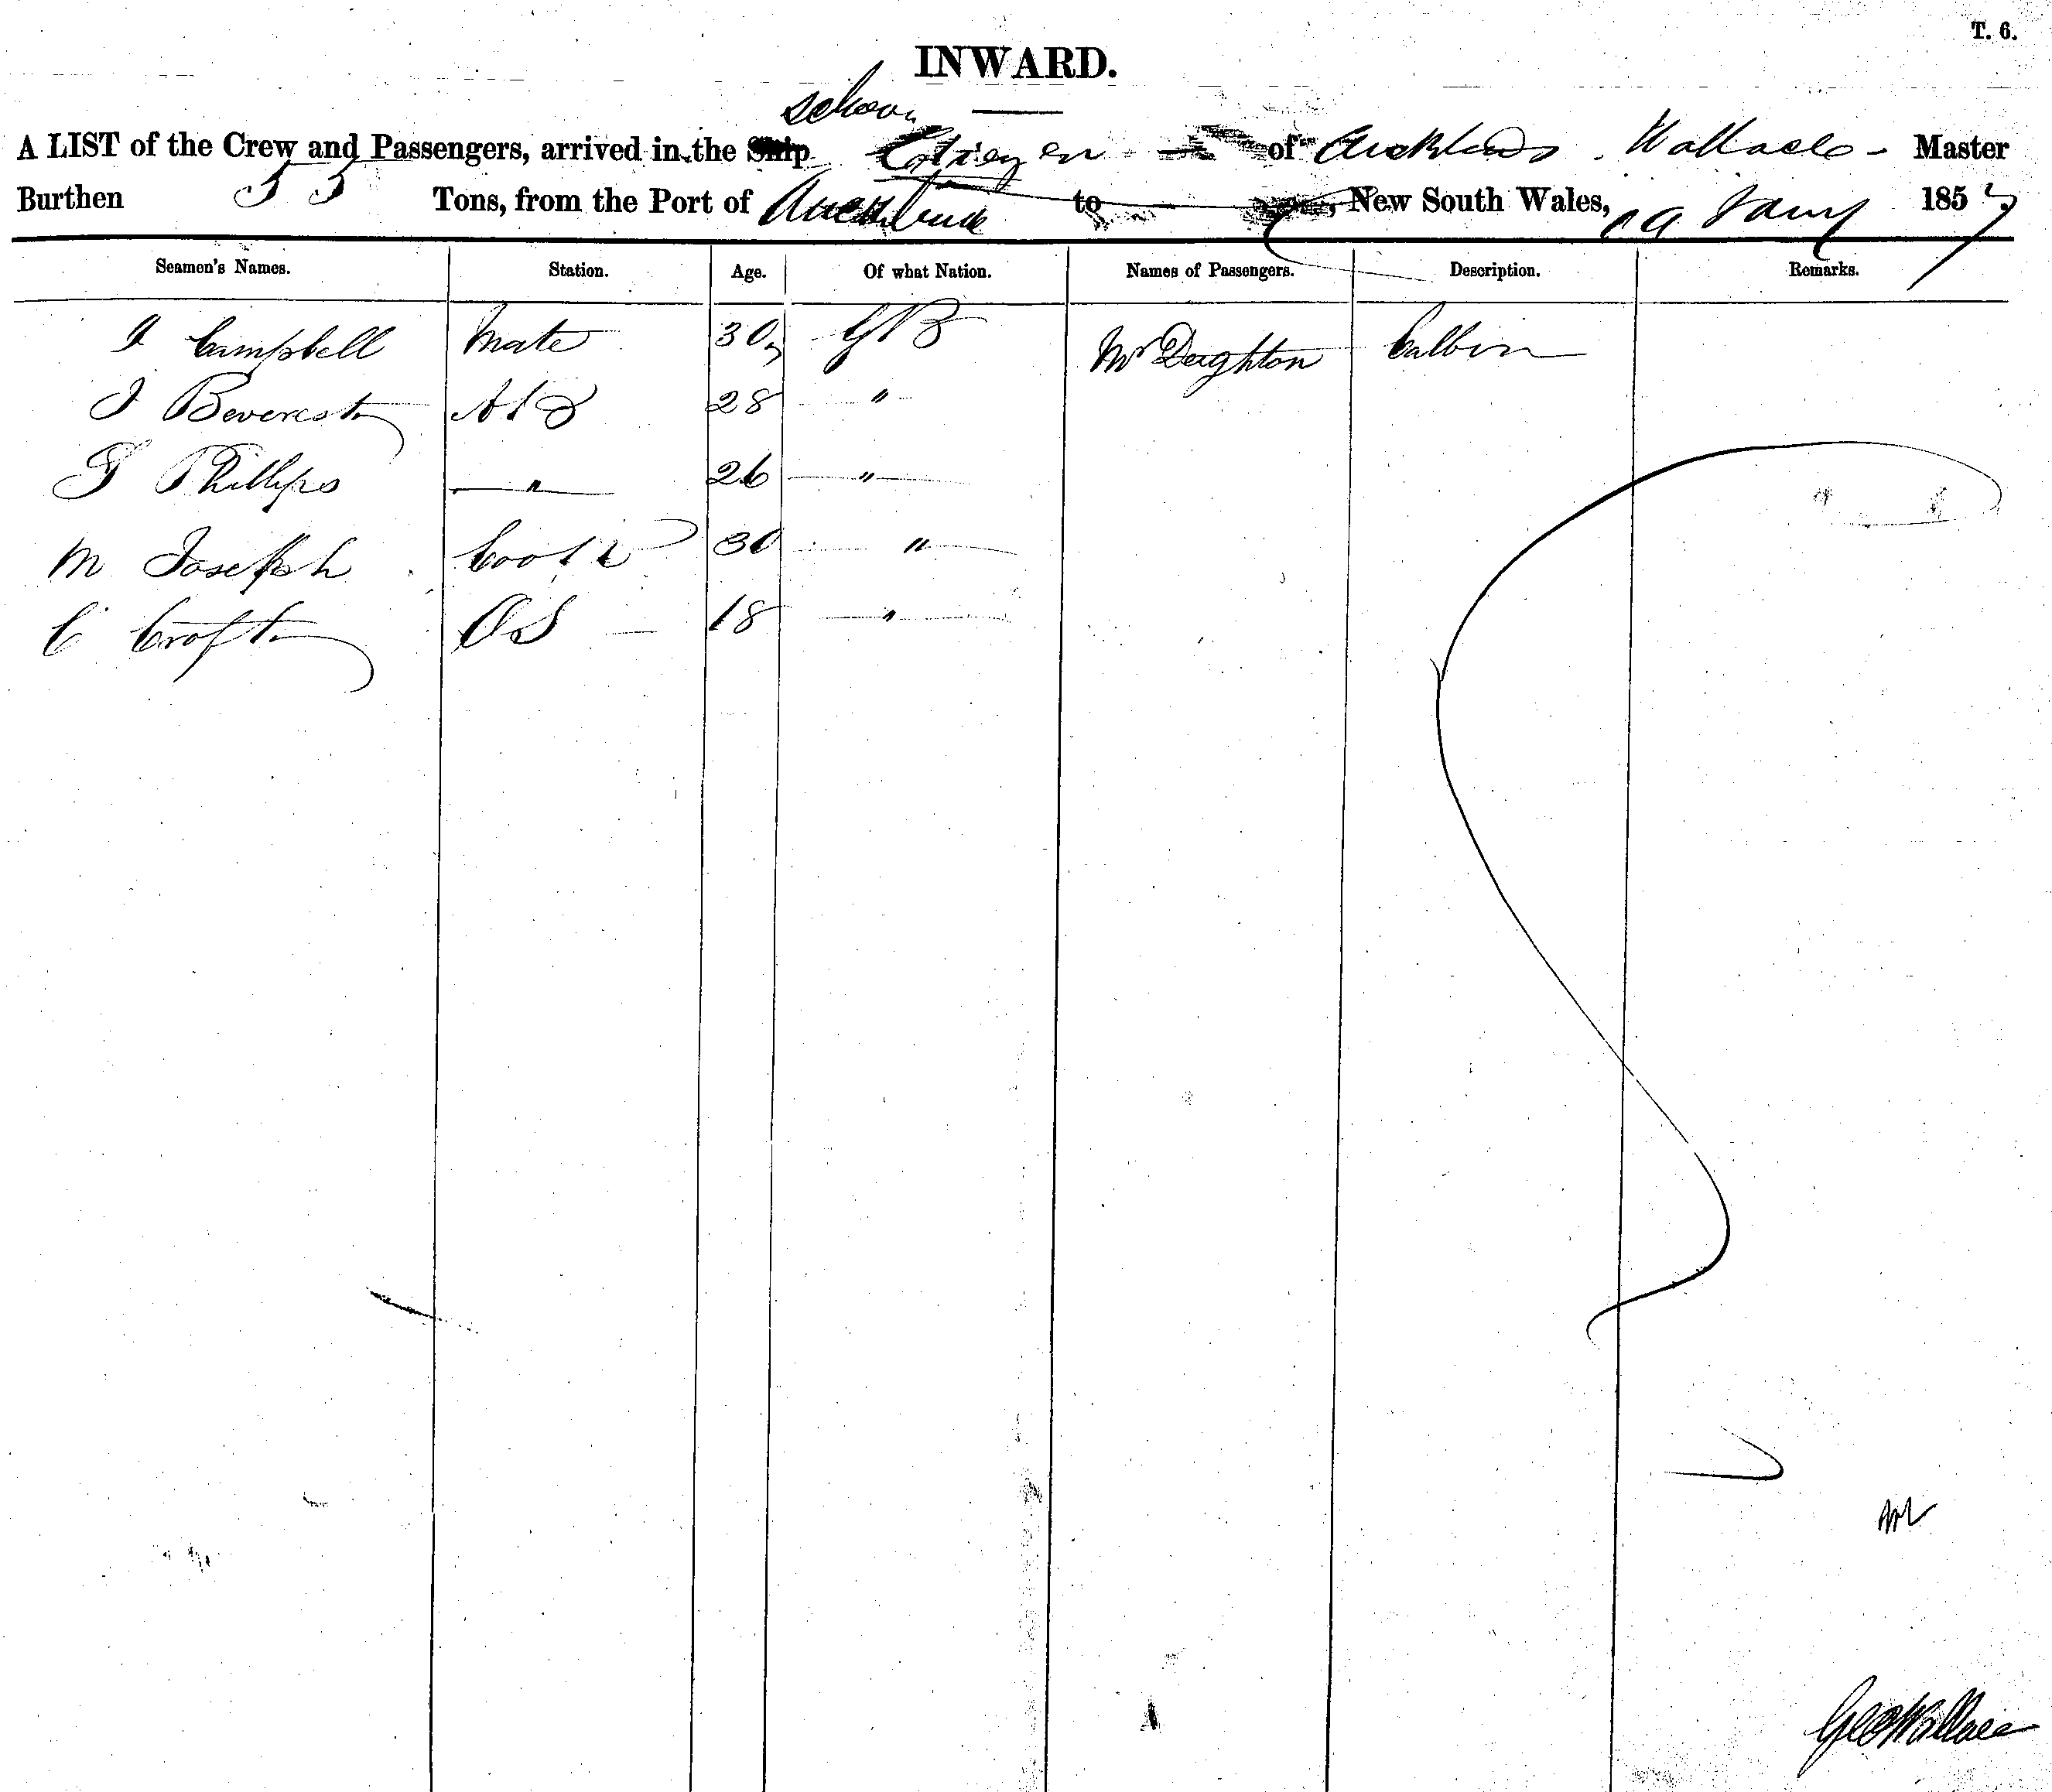 T. 6.
INWARD.
schoon
A LIST of the Crew and Passengers, arrived in the Ship Citizen of Auckland Wallace - Master
Burthen 55 Tons, from the Port of Auckland to , New South Wales, 19 Jany 1857
Seamen's Names. Station. Age. Of what Nation. Names of Passengers. Description. Remarks.
J Campbell Mate 30 GB Mr Deighton Cabbin
J Beverest AB 28 "
T Phillips " 26 "
M Joseph Cook 30 "
C Croft OS 18 "
Geo Wallace